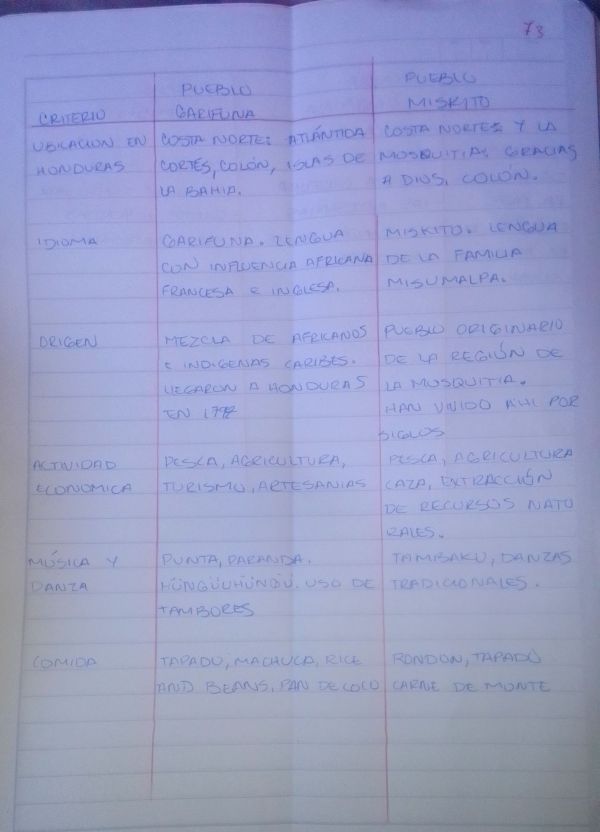 73
CRITERIO
PUEBLO
GARIFUNA
PUEBLO
MISKITO
UBICACION EN
HONDURAS
COSTA NORTE: ATLÁNTIDA
CORTÉS, COLÓN, ISLAS DE
LA BAHIA.
COSTA NORTES Y LA
MOSQUITIA, GRACIAS
A DIOS, COLÓN.
IDIOMA
GARIFUNA. LENGUA
CON INFLUENCIA AFRICANA
FRANCESA E INGLESA.
MISKITO. LENGUA
DE LA FAMILIA
MISUMALPA.
ORIGEN
MEZCLA DE AFRICANOS
E INDIGENAS CARIBES.
LLEGARON A HONDURAS
EN
PUEBLO ORIGINARIO
DE LA REGIÓN DE
LA MOSQUITIA.
HAN VIVIDO AHI POR
SIGLOS
ACTIVIDAD
ECONOMICA
PESCA, AGRICULTURA,
TURISMO, ARTESANIAS
PESCA, AGRICULTURA
CAZA, EXTRACCIÓN
DE RECURSOS NATU
RALES.
MÚSICA Y
DANZA
PUNTA, PARANDA.
HÜNGÜÜHÜNDÜ. USO DE
TAMBORES
TAMBAKU, DANZAS
TRADICIONALES.
COMIDA
TAPADO, MACHUCA, RICE
AND BEANS, PAN DE COCO
RONDON, TAPADO
CARNE DE MONTE